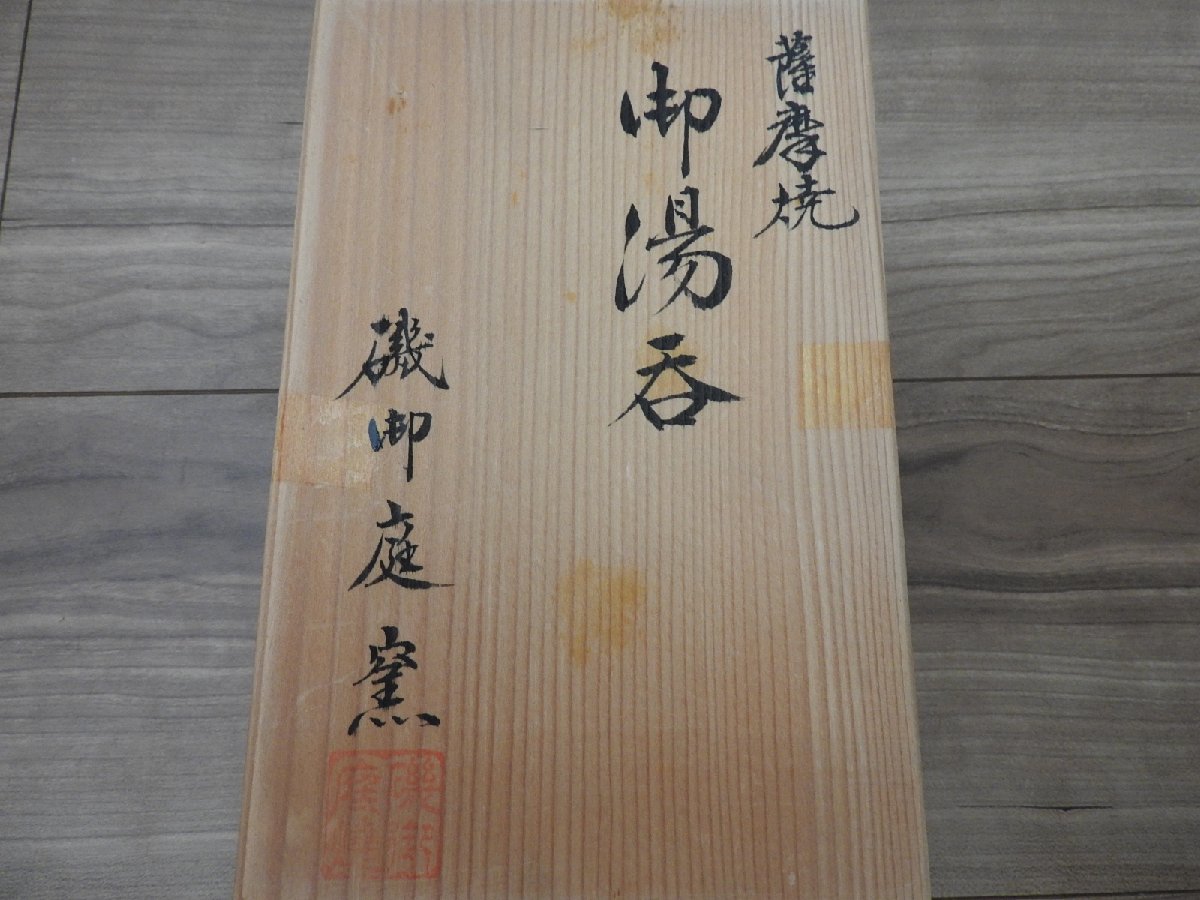 薩摩焼
御湯呑
磯御庭窯